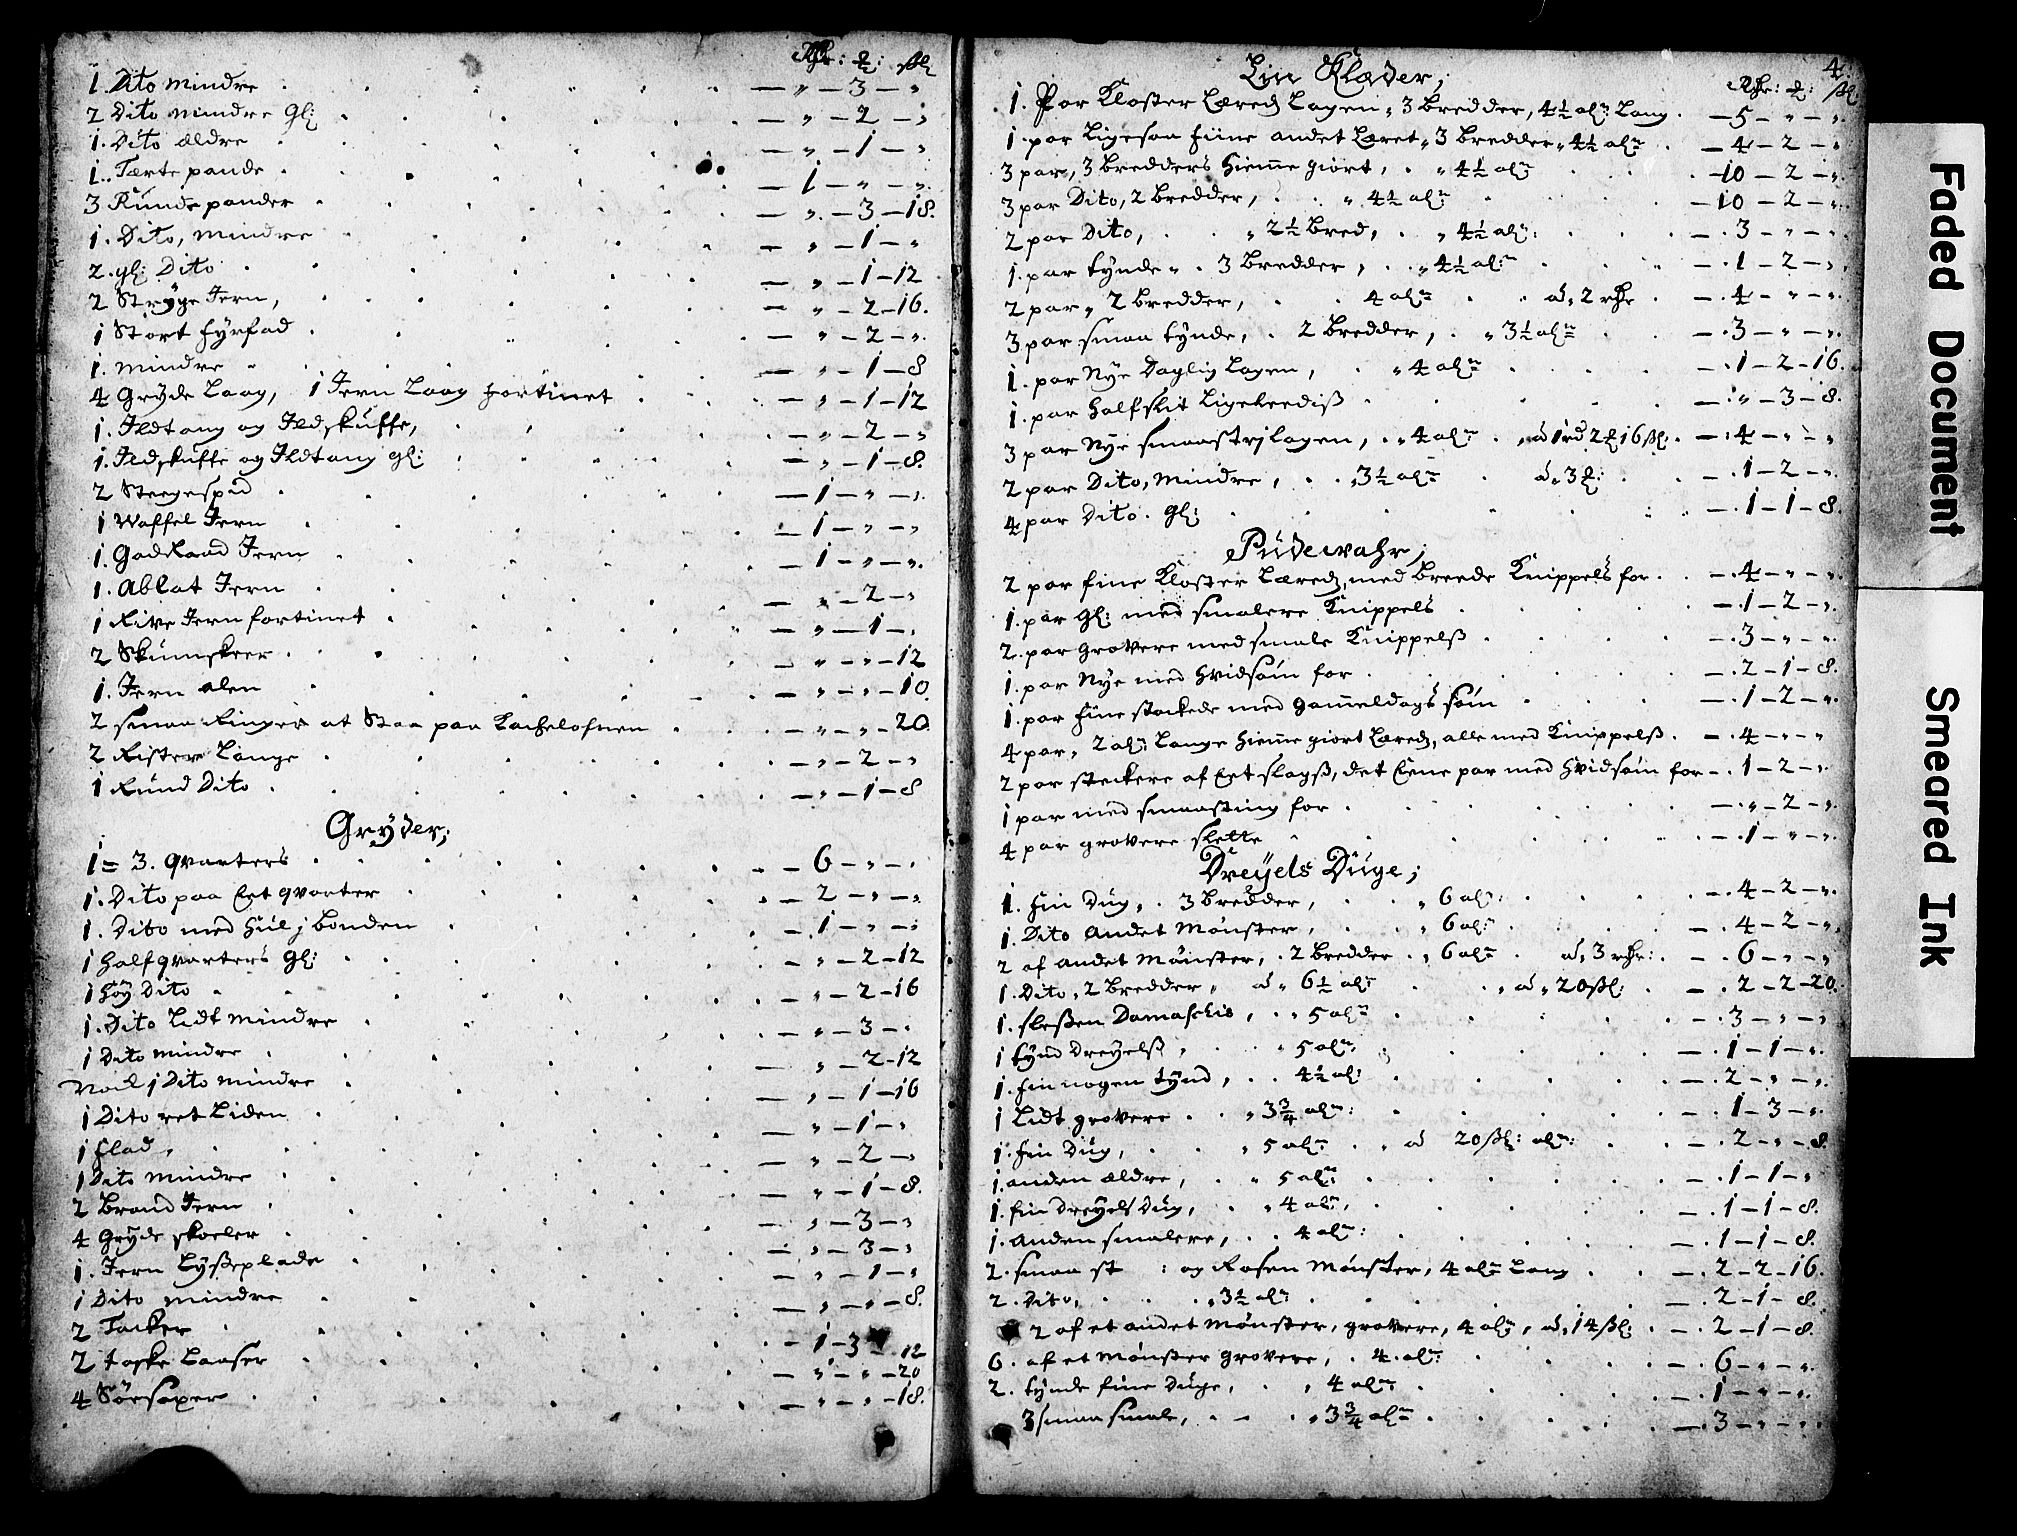 Rdr: ₰: ßl
1. Dito mindre — „ — 3 — „
2 Dito mindre gl: — „ — 2 — „
1. Dito ældre — „ — 1 — „
1. Tærte pande — 1 — „ — „
3 Runde pander — „ — 3 — 18.
1. Dito, mindre — „ — 1 — „
2. gl: Dito — „ — 1 — 12
2 Stryge Jern, — „ — 2 — 16.
1 Stort fyrfad — „ — 2 — „
1. mindre — „ — 1 — 8
4 Gryde Laag, 1 Jern Laag fortinet — „ — 1 — 12
1. Ildtang og Ildskuffe, — „ — 2 — „
1. Ildskuffe og Ildtang gl: — „ — 1 — 8.
2 Steegespid — 1 — „ — „
1 Waffel Jern — 1 — „ — „
1. Godraad Jern — 1 — „ — „
1. Ablat Jern — „ — 2 — „
1 Rive Jern fortinet — „ — 1 — „
2 Skumskeer — „ — „ — 12
1. Jern alen — „ — „ — 10.
2 smaa Ringer at staa paa Kachelofnen — „ — „ — 20
2 Rister Lange — „ — 2 — „
1 Rund Dito — „ — 1 — 8
Gryder;
1 = 3. qvarters — 6 — „ — „
1. Dito paa Eet qvarter — 2 — „ — „
1. Dito med Hul j bonden — 1 — „ — „
1 Halfqvarters gl: — „ — 2 — 12
1 Høy Dito — „ — 2 — 16
1. Dito Lidt mindre — „ — 3 — „
1 Dito mindre — „ 2 — 12
Noch 1 Dito mindre — „ — 1 — 16
1 Dito ret Liden — „ — 1 — „
1 flad, — „ — 2 — „
1 Dito mindre — „ — 1 — 8.
2 Brand Jern — „ — 3 — „
4 Gryde skoeler — „ — 3 — „
1. Jern Lysseplade — „ — 1 — „
1 Dito mindre — „ — „ — 8.
2 Tacker — 1 — 3 — 12
2 taske Laaser — „ — „ — 20
4 — „ — „ — 18.
4.
Lin Klæder;
Rdr: ₰: ßl
1. Par Kloster Læreds Lagen „ 3 bredder, 4½ alⁿ: Lang — 5 — „ — „
1. par Ligesaa fiine andet Læret „ 3 bredder „ 4½ alⁿ — 4 — 2 — „
3 par, 3 bredders Hiemme giort, „ 4½ alⁿ — 10 — 2 — „
3 par Dito, 2 bredder, „ 4½ alⁿ — 10 — 2 — „
2 par Dito, „ 2½ bred, „ 4½ alⁿ: — 3 — „ — „
1. par tynde „ 3 bredder, „ 4½ alⁿ — 1 — 2 — „
2 par „ 2 bredder, 4 alⁿ à 2 rdr — 4 — „ — „
3 par smaa tynde, 2 bredder, „ 3½ alⁿ — 3 — „ — „
1. par Nye Daglig Lagen, „ 4 alⁿ — 1 — 2 — 16.
1. par Halfslit Ligeleediß — „ — 3 — 8.
3 par Nye smaastrj lagen, „ 4 alⁿ à 1 rd 2 ₰ 16 ßl. — 4 — „ — „
2 par Dito, mindre, „ 3½ alⁿ à 3 ₰: — 1 — 2 — „
4 par Dito gl: — 1 — 1 — 8.
Pudevahr;
2 par fine Kloster Læreds, med breede Knippels for — 4 — „ — „
1. par gl: med smalere Knippels — 1 — 2 — „
2. par grovere med smale Knippelß — 3 — „ — „
1. par Nye med Hvidsøm for — 2 — 1 — 8.
1. par fiine stackede med Gameldags søm — 1 — 2 — „
4 par, 2 alⁿ: Lange Hiemme giort Læreds, alle med Knippelß — 4 — „ — „
2 par steckere af Eet slagß, det Eene par med Hvidsøm for — 1 — 2 — „
1 par med smaasting for — „ — 2 — „
4 par grovere slette — 1 — „ — „
Dreyels Duge;
1. fin Dug, 3 bredder, „ 6 alⁿ: — 4 — 2 — „
1. Dito Andet Mønster, „ 6 alⁿ — 4 — 2 — „
2 af Andet Mønster, 2 bredder „ 6 alⁿ à 3 rdr: — 6 — „ — „
1. Dito, 2 bredder, à „ 6½ alⁿ „ à „ 20 ßl: — 2 — 2 — 20.
1. slessen Damaschis, „ 5 alⁿ — 3 — „ — „
1 tynd Dreyelß, „ 5 alⁿ, — 1 — 1 — „
1. fin nogen tynd, 4½ al: — 2 — „ — „
1 Lidt grovere „ 3¾ alⁿ: — 1 — 3 — „
1. fin Dug, „ 5 alⁿ „ à 20 ßl: alⁿ: — 2 — „ — 8.
1. anden ældre, „ 5 alⁿ: — 1 — 1 — „
1. fin Dreyels Dug, „ 4 alⁿ, — 1 — 1 — 8.
1. Anden smalere, 4 alⁿ: — 1 — 1 — 8.
2. smaa st : og Rosen Mønster, 4 alⁿ Lang — 2 — 2 — 16.
2. Dito, „ 3½ alⁿ: — 2 — 1 — 8.
2 af et andet Mønster, grovere, 4 alⁿ, à 14 ßl: — 2 — 1 — 8.
6. af et Mønster grovere, 4. alⁿ: — 6 — „ — „
2. tynde fine Duge, „ 4 alⁿ: — 1 — „ — „
3 smaa smale, — „ 3¾ alⁿ — 3 — „ — „
Faded Document
Smeared Ink